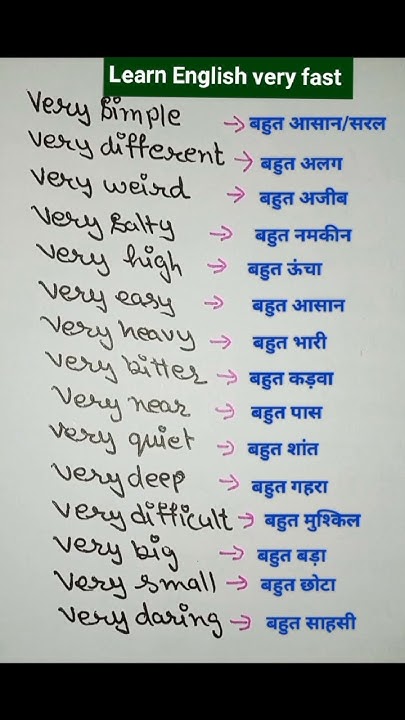 Learn English very fast
very simple → बहुत आसान/सरल
very different → बहुत अलग
very weird → बहुत अजीब
very salty → बहुत नमकीन
very high → बहुत ऊंचा
very easy → बहुत आसान
very heavy → बहुत भारी
very bitter → बहुत कड़वा
very near → बहुत पास
very quiet → बहुत शांत
very deep → बहुत गहरा
very difficult → बहुत मुश्किल
very big → बहुत बड़ा
very small → बहुत छोटा
very daring → बहुत साहसी